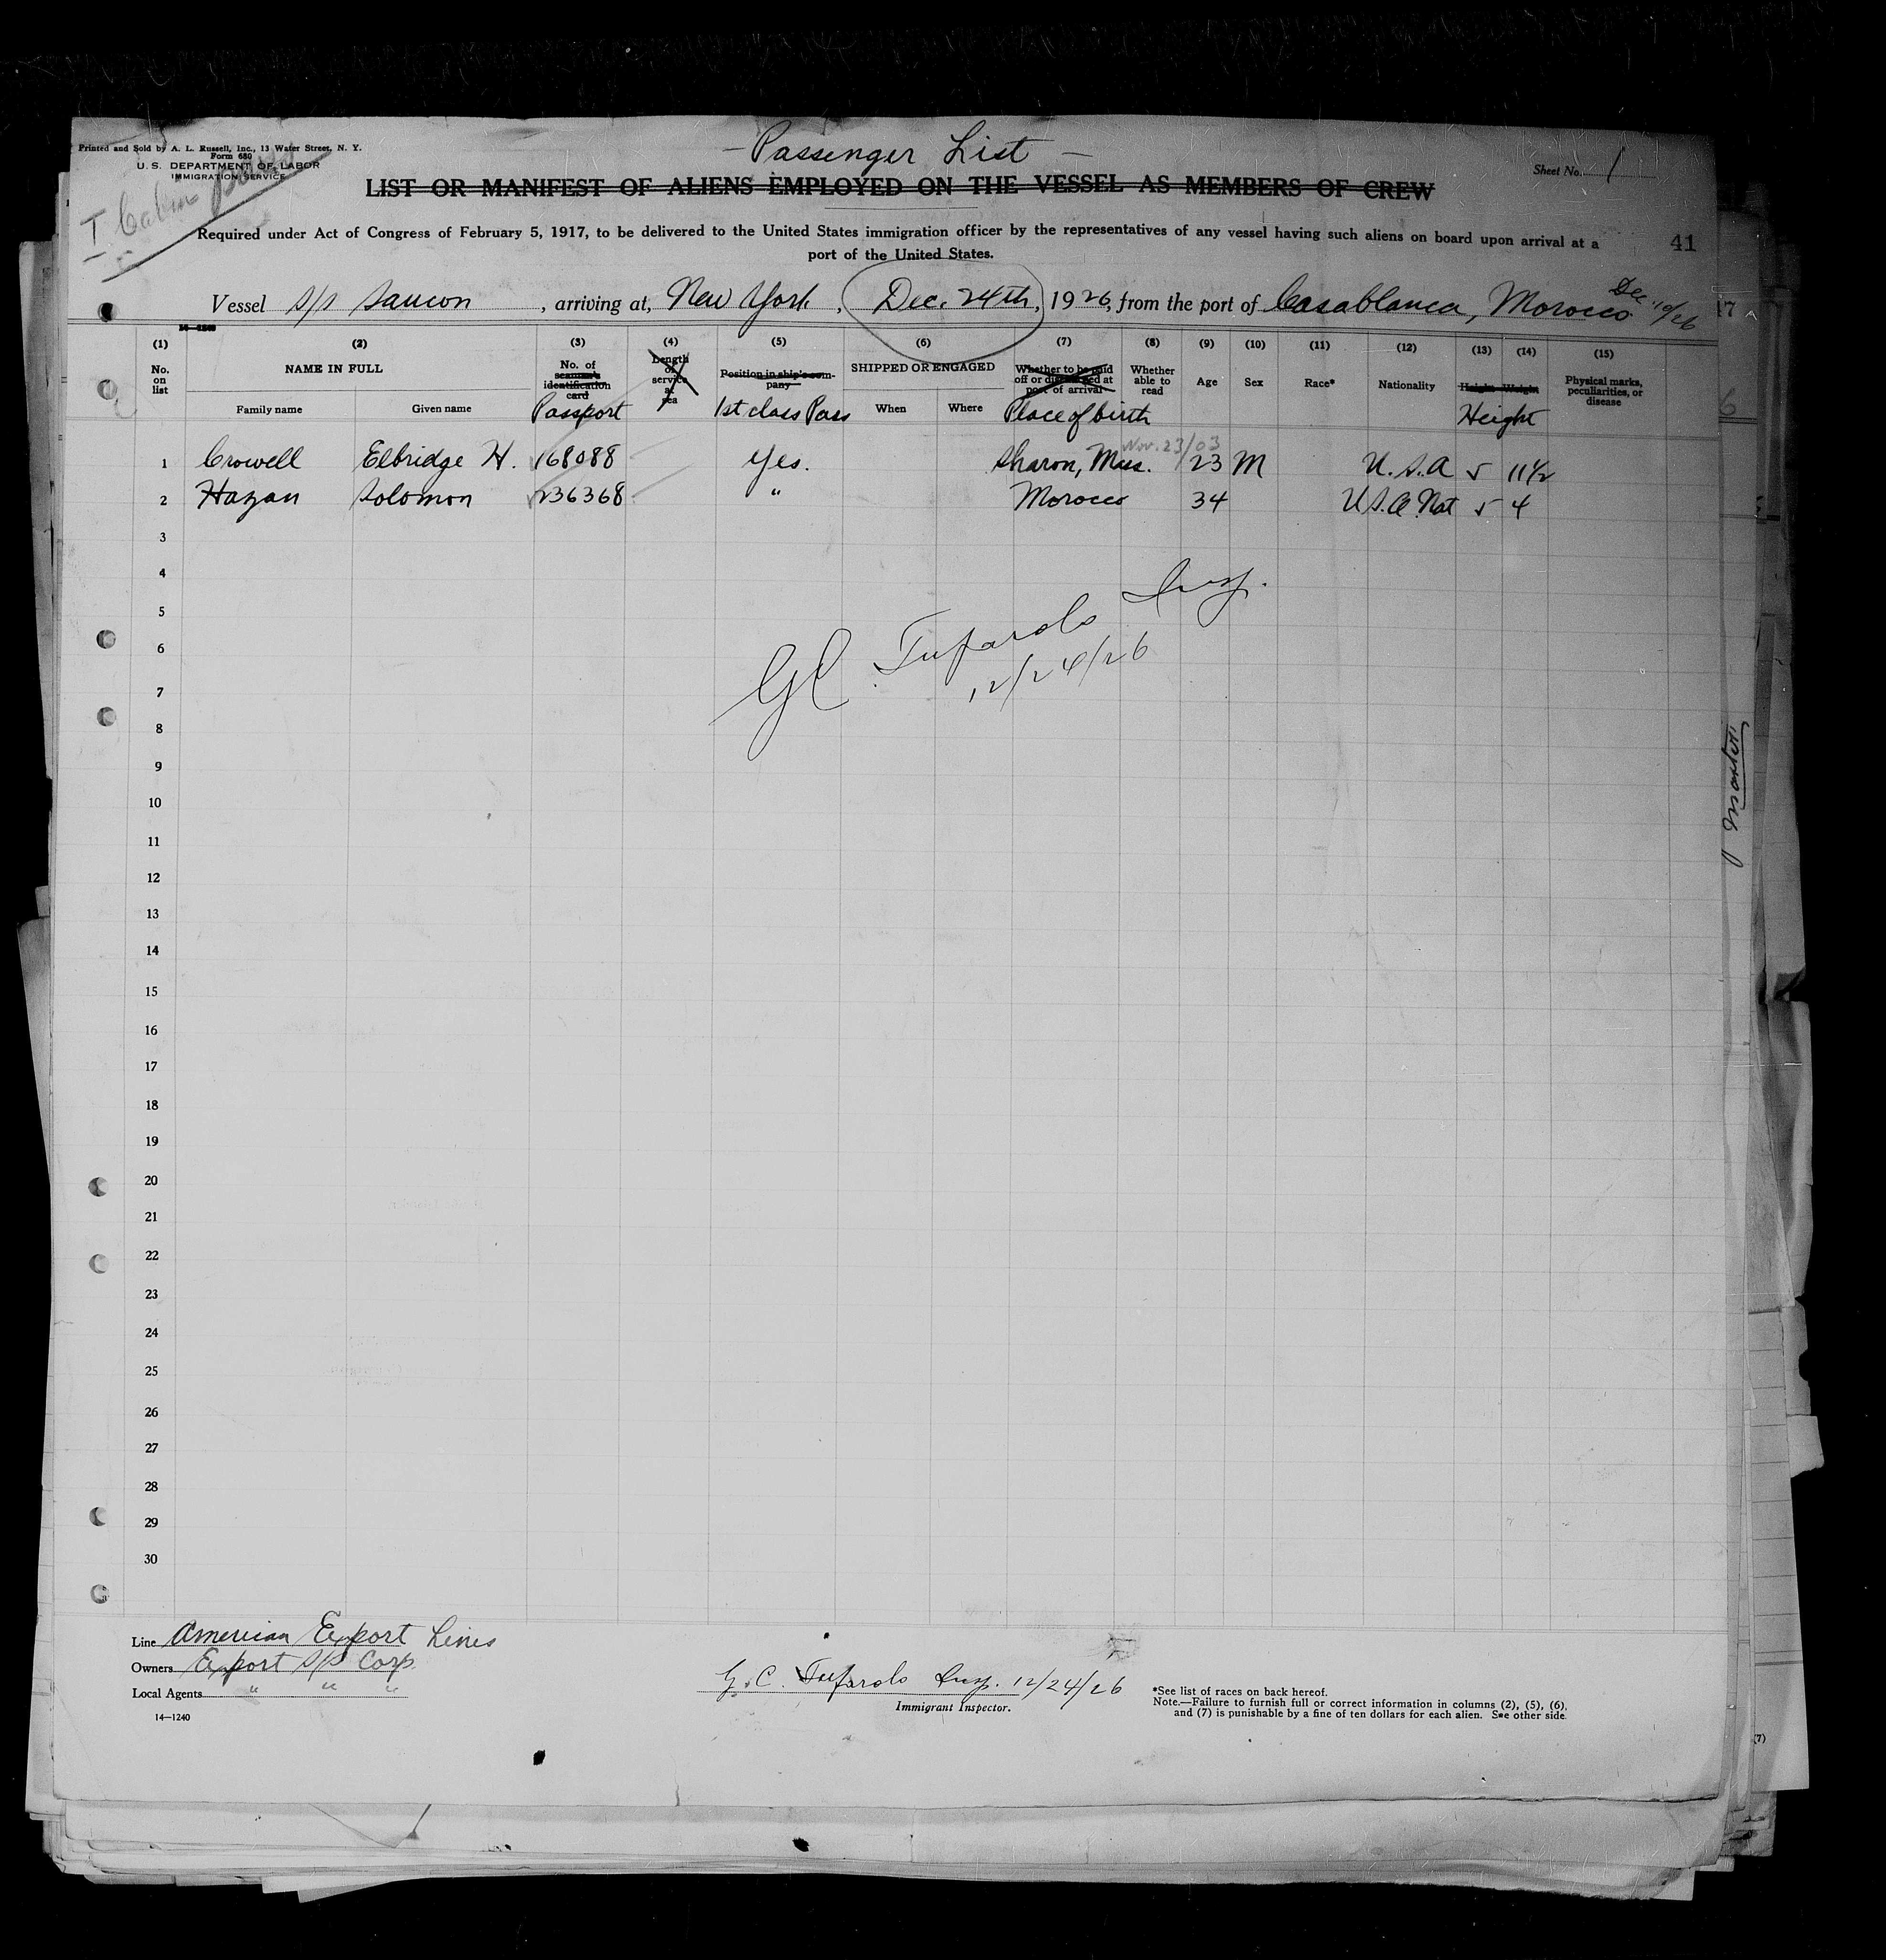 Printed and Sold by A. L. Russell, Inc., 13 Water Street, N. Y.
Form 680
U. S. DEPARTMENT OF LABOR
IMMIGRATION SERVICE
- Passenger List -
Sheet No. 1
LIST OR MANIFEST OF ALIENS EMPLOYED ON THE VESSEL AS MEMBERS OF CREW
Required under Act of Congress of February 5, 1917, to be delivered to the United States immigration officer by the representatives of any vessel having such aliens on board upon arrival at a
port of the United States.
41
Vessel S/S Saucon, arriving at, New York, Dec. 24th, 1926, from the port of Casablanca, Morocco Dec. 10/26
14-1240
(1) (2) (3) (4) (5) (6) (7) (8) (9) (10) (11) (12) (13) (14) (15)
No. on list
NAME IN FULL
Family name
Given name
No. of seaman's identification card
Passport
Length of service at sea
Position in ship's company
1st class Pass
SHIPPED OR ENGAGED
When
Where
Whether to be paid off or discharged at port of arrival
Place of birth
Whether able to read
Age
Sex
Race*
Nationality
Height Weight
Height
Physical marks, peculiarities, or disease
Nov. 23/03
1 Crowell Elbridge H. 168088 Yes. Sharon, Mass. 23 M U.S.A 5 11 1/2
2 Hazan Solomon 236368 " Morocco 34 U.S.A. Nat 5 4
3
4
5
6
7
8
9
10
11
12
13
14
15
16
17
18
19
20
21
22
23
24
25
26
27
28
29
30
G C. Tufarolo Insp.
12/24/26
Master
Line American Export Lines
Owners Export S/S Corp.
Local Agents " " "
14—1240
G. C. Tufarolo Insp. 12/24/26
Immigrant Inspector.
*See list of races on back hereof.
Note.—Failure to furnish full or correct information in columns (2), (5), (6),
and (7) is punishable by a fine of ten dollars for each alien. See other side.